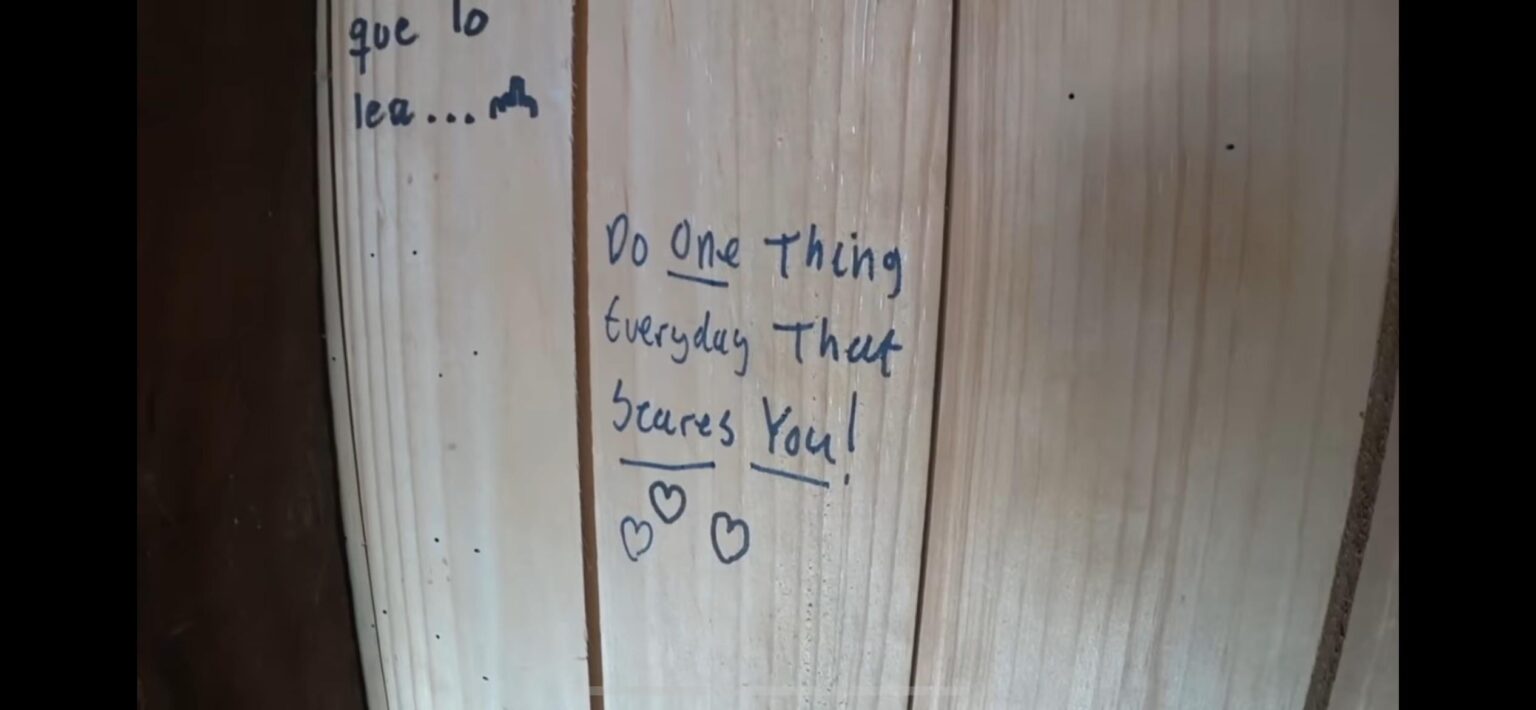 que lo
lea...
Do One Thing
Everyday That
Scares You!